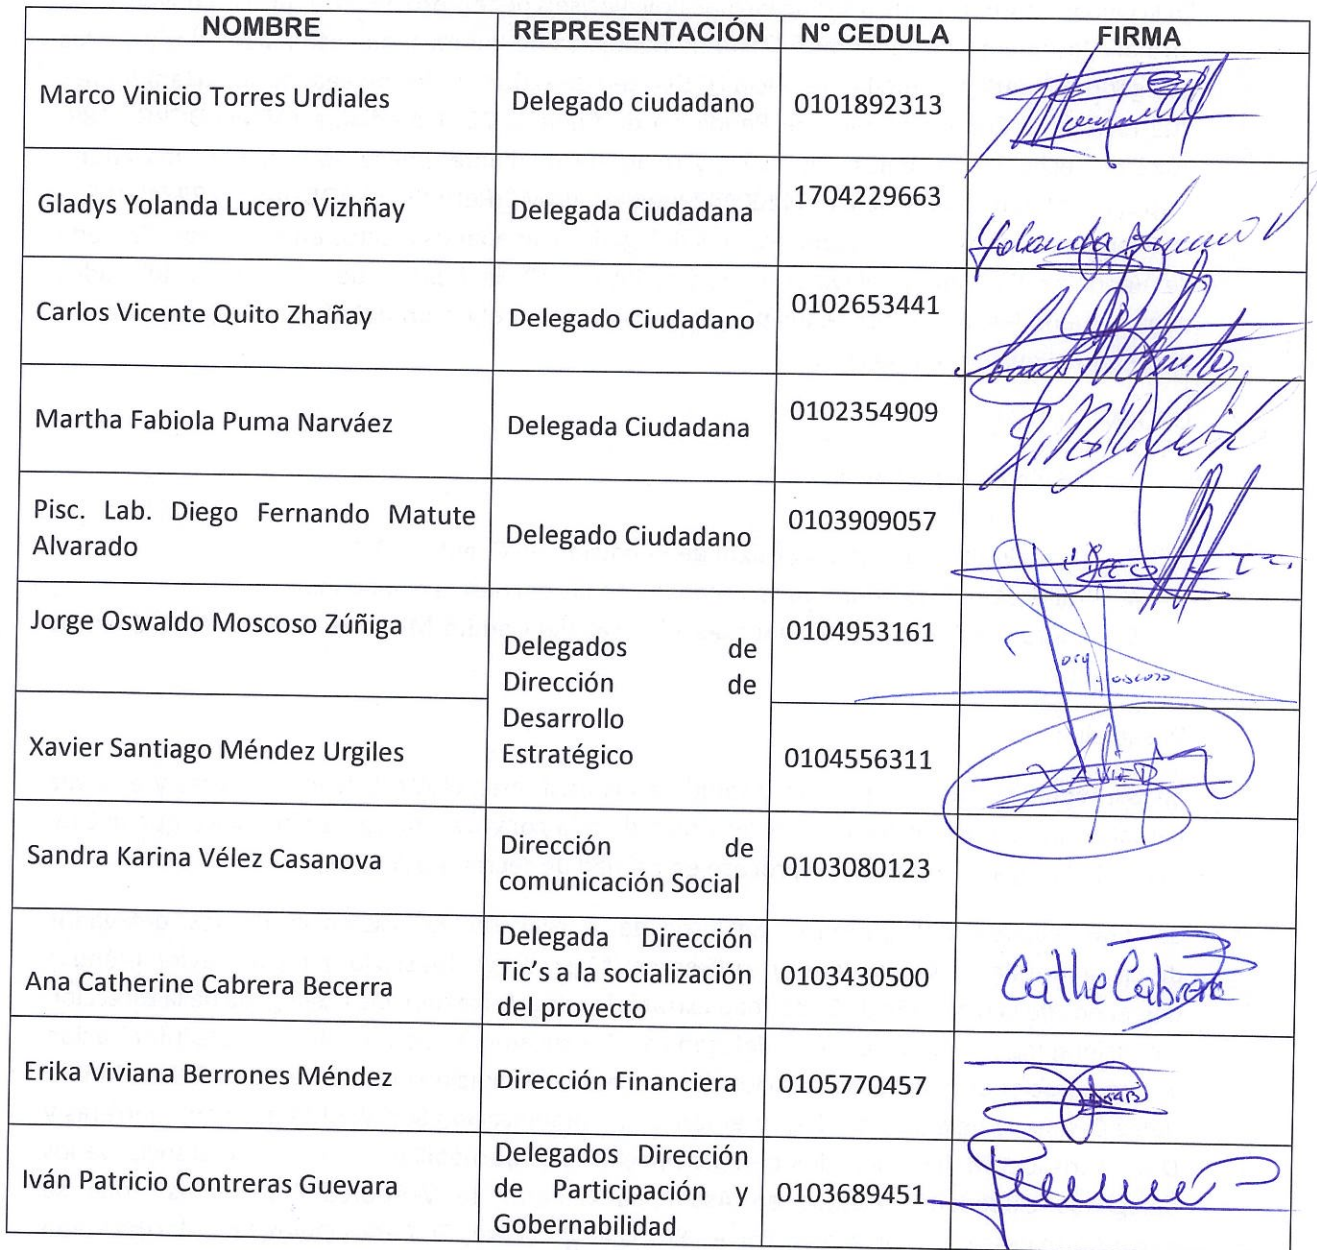 NOMBRE REPRESENTACIÓN N° CEDULA FIRMA
Marco Vinicio Torres Urdiales Delegado ciudadano 0101892313
Gladys Yolanda Lucero Vizhñay Delegada Ciudadana 1704229663
Yolanda Lucero V
Carlos Vicente Quito Zhañay Delegado Ciudadano 0102653441
Martha Fabiola Puma Narváez Delegada Ciudadana 0102354909
Pisc. Lab. Diego Fernando Matute
Alvarado
Delegado Ciudadano 0103909057
Jorge Oswaldo Moscoso Zúñiga
Delegados de
Dirección de
Desarrollo
Estratégico
0104953161
Xavier Santiago Méndez Urgiles 0104556311
Sandra Karina Vélez Casanova
Dirección de
comunicación Social
0103080123
Ana Catherine Cabrera Becerra
Delegada Dirección
Tic's a la socialización
del proyecto
0103430500
Cathe Cabrera
Erika Viviana Berrones Méndez Dirección Financiera 0105770457
Iván Patricio Contreras Guevara
Delegados Dirección
de Participación y
Gobernabilidad
0103689451